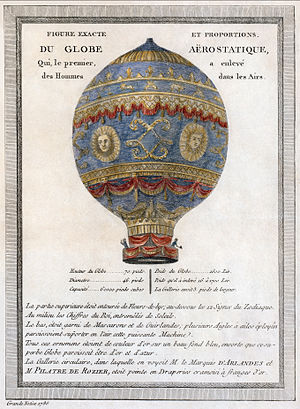 FIGURE EXACTE ET PROPORTIONS.
DU GLOBE AËROSTATIQUE,
Qui, le premier, a enlevé
des Hommes dans les Airs.
Hauteur du Globe 70. pieds
Diametre 46. pieds
Capacité 60000 pieds cubes
Poids du Globe 1600 Liv.
Poids qu'il a enlevé 16 à 1700 Liv.
La Gallerie avoit 3 pieds de largeur.
La partie superieure étoit entourée de Fleurs-de-lys, au-dessous les 12 Signes du Zodiaque.
Au milieu les Chiffres du Roi, entremêlés de Soleils.
Le bas, étoit garni de Mascarons et de Guirlandes, plusieurs Aigles à ailes éployées
paroissoient supporter en l'air cette puissante Machine.
Tous ces ornemens étoient de couleur d'or sur un beau fond bleu, ensorte que ce su-
perbe Globe paroissoit être d'or et d'azur.
La Gallerie circulaire, dans laquelle on voyoit M. le Marquis D'ARLANDES et
M. PILATRE DE ROZIER, étoit peinte en Draperies cramoisi à franges d'or.